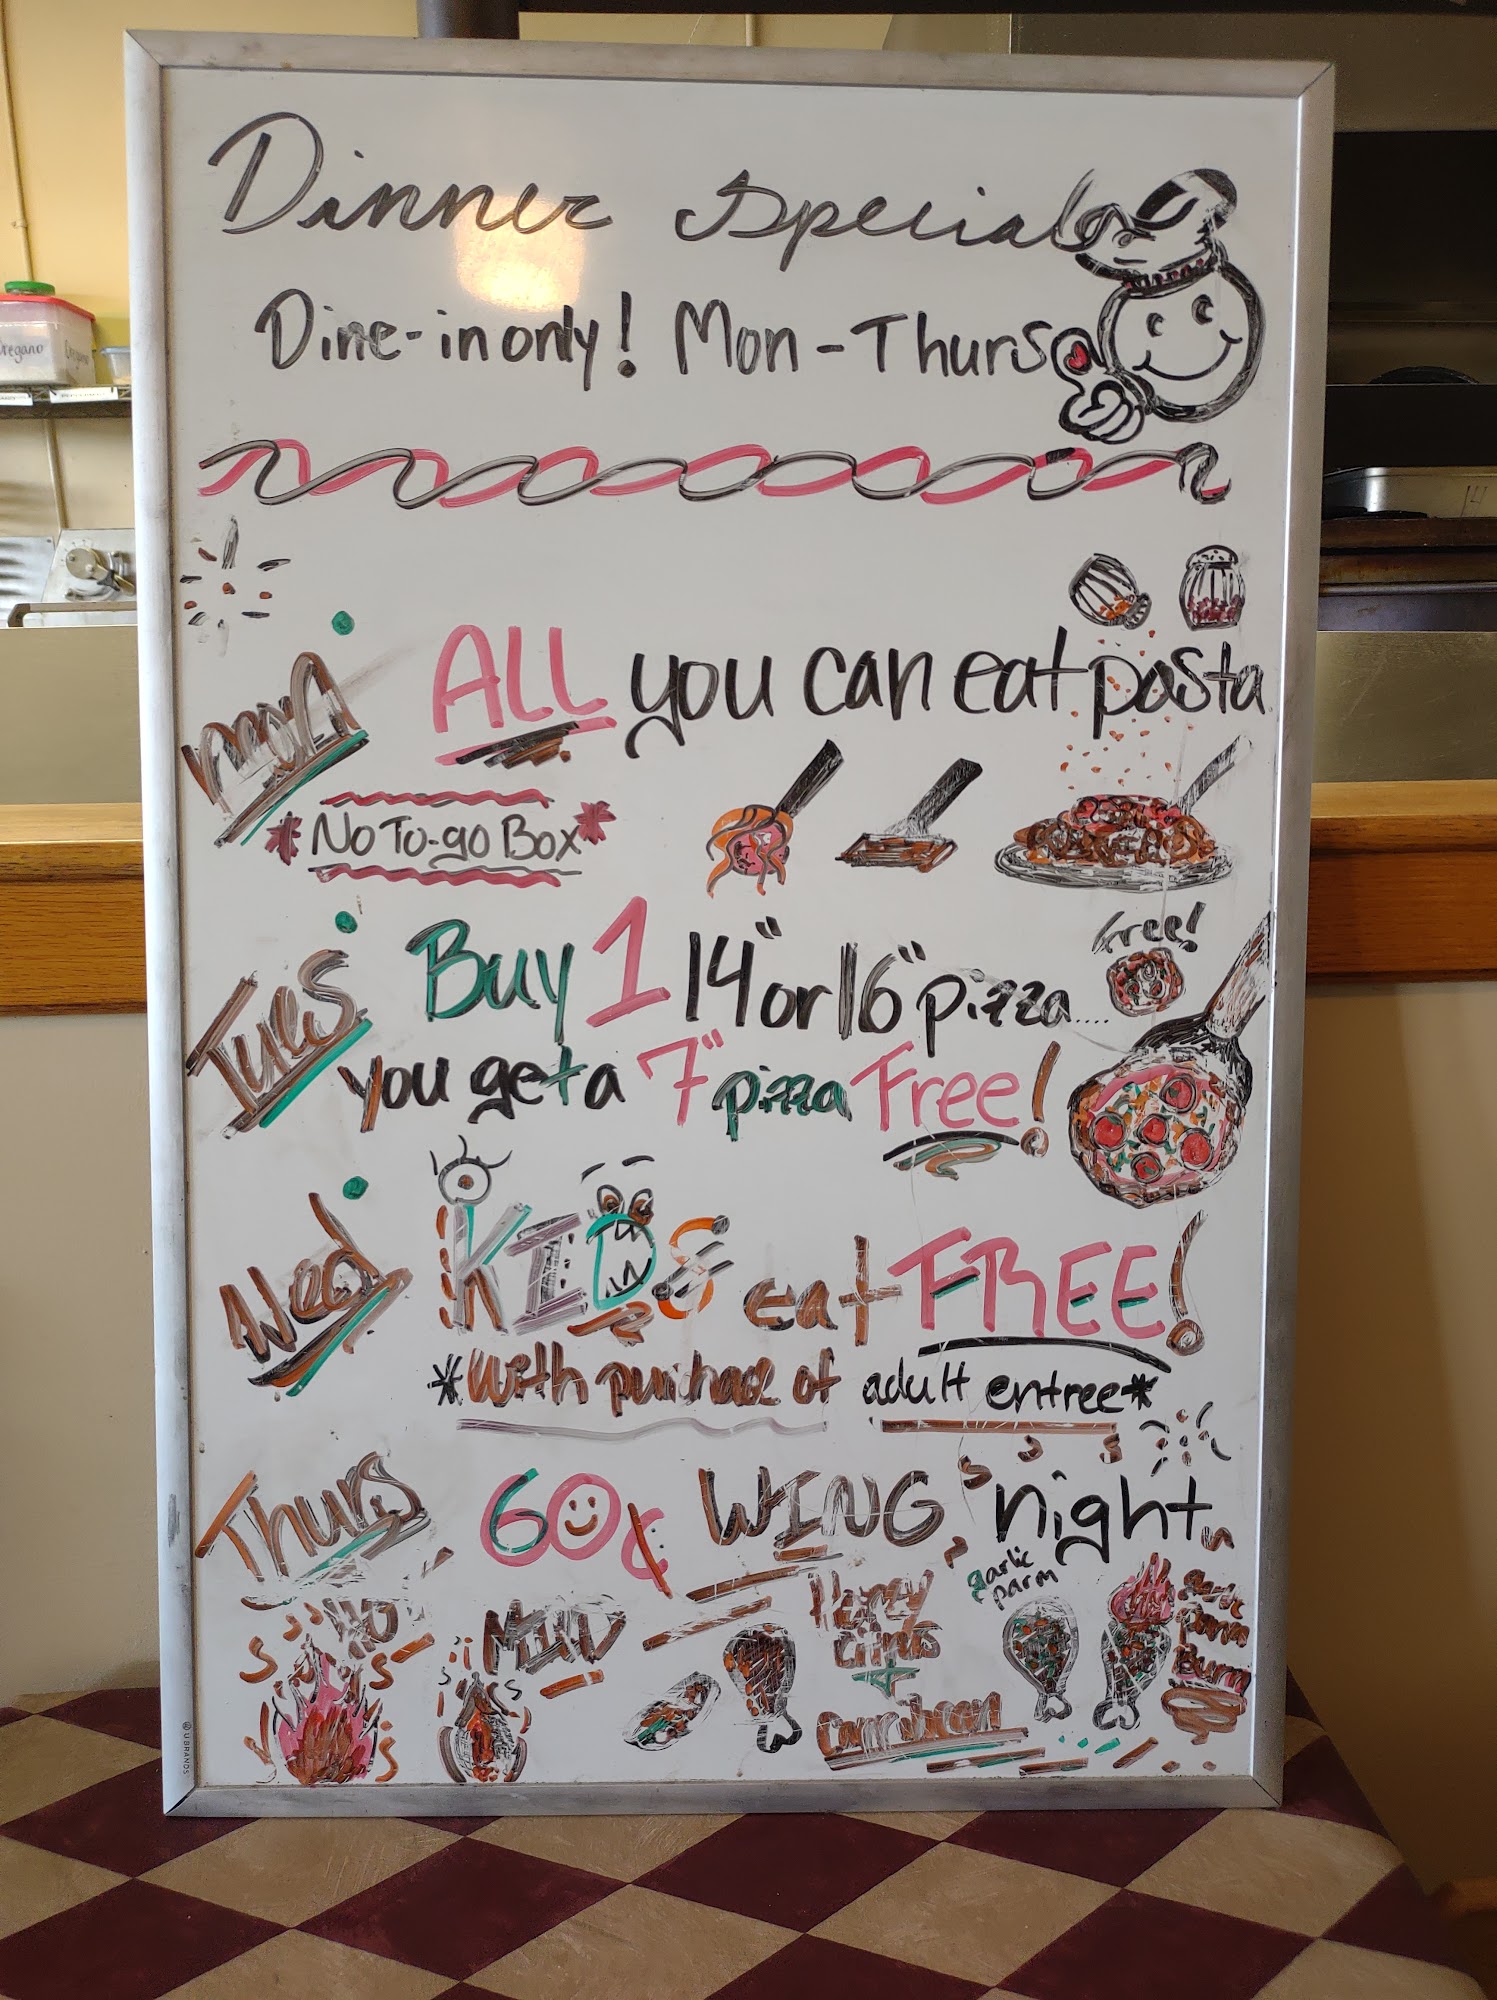 Dinner Specials
Dine-in only! Mon-Thurs
Mon ALL you can eat pasta
*No To-go Box*
Free!
Tues Buy 1 14" or 16" pizza....
you get a 7" pizza Free!
Wed KIDS eat FREE!
*with purchase of adult entree*
Thurs 60¢ WING night
Hot
Mild
Honey
Citrus
+
Carribean
garlic
parm
Garlic
Parm
Burn
U BRANDS
oregano
Oregano
14